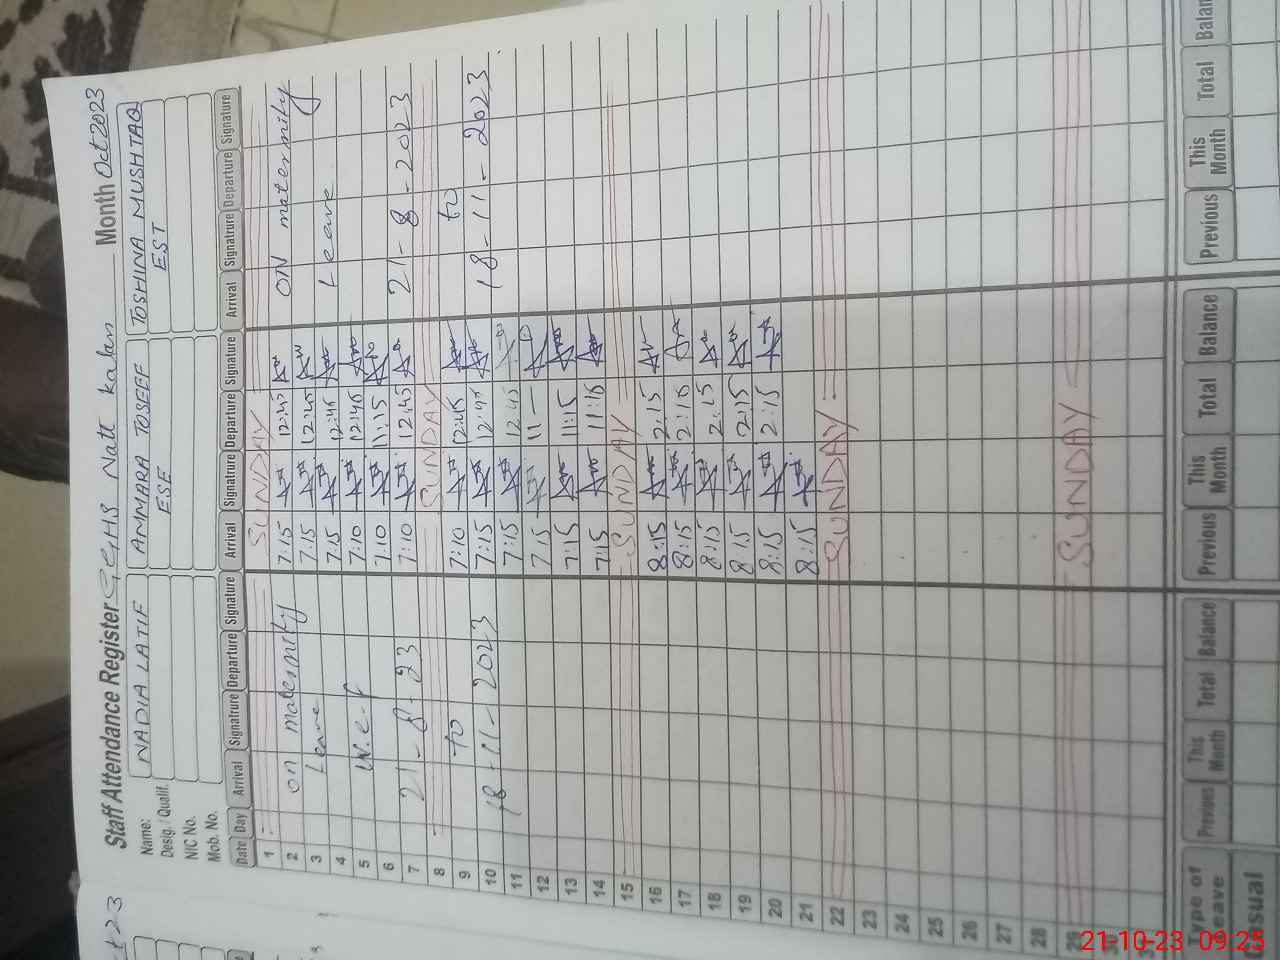 Staff Attendance Register GGHS Natt Kalan Month Oct 2023
Name: NADIA LATIF AMMARA TOSEEF TOSHINA MUSHTAQ
Desig. / Qualif. ESE EST
NIC No.
Mob. No.
Date Day Arrival Signatrure Departure Signature Arrival Signature Departure Signature Arrival Signatrure Departure Signature
1 SUNDAY
2 on maternity 7:15 12:45 ON maternity
3 Leave 7:15 12:45 Leave
4 7:15 12:45
5 W.e.f 7:10 12:45
6 7:10 11:15
7 21-8-23 7:10 12:45 21-8-2023
8 SUNDAY
9 to 7:10 12:45 to
10 18-11-2023 7:15 12:45 18-11-2023
11 7:15 12:45
12 7:15 11-
13 7:15 11:15
14 7:15 11:15
15 SUNDAY
16 8:15 2:15
17 8:15 2:15
18 8:15 2:15
19 8:15 2:15
20 8:15 2:15
21 8:15
22 SUNDAY
23
24
25
26
27
28
29 SUNDAY
30
Type of Leave Previous This Month Total Balance Previous This Month Total Balance Previous This Month Total Balan
Casual
21-10-23 09:25